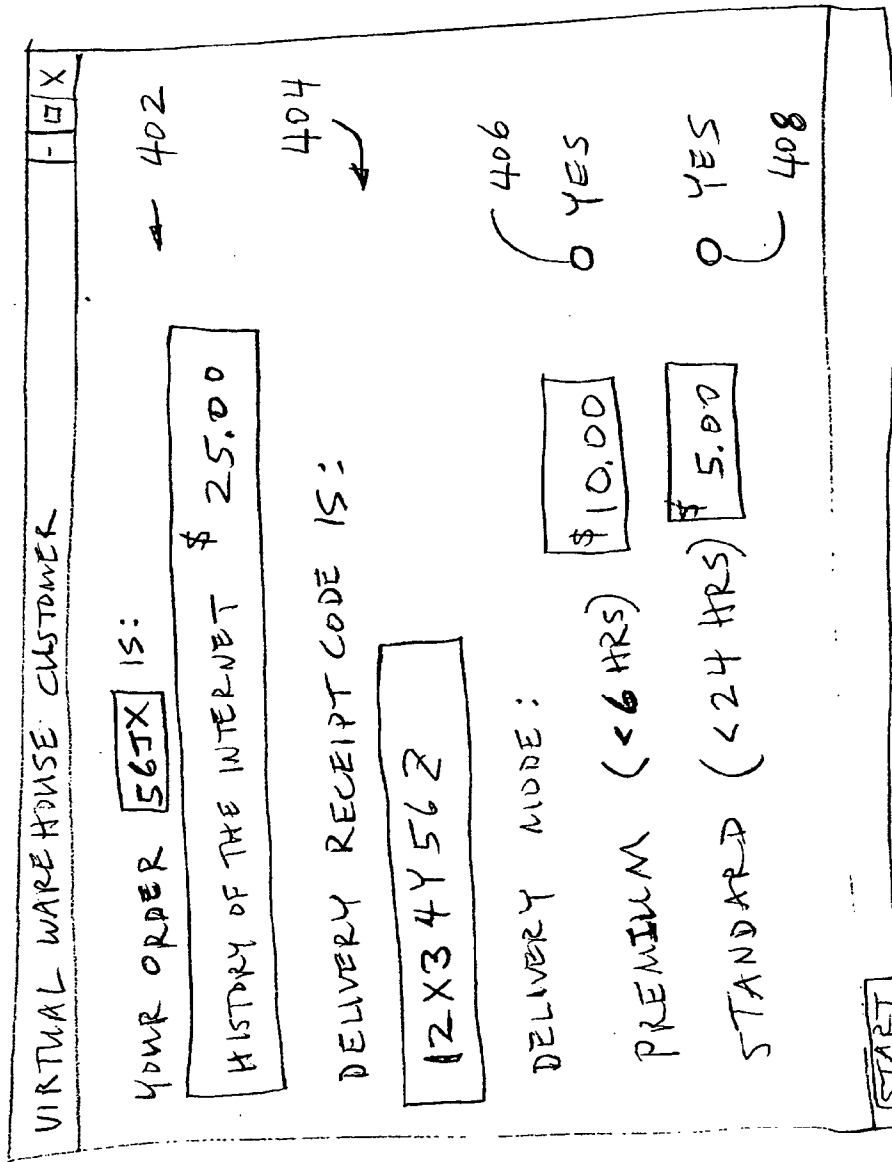 VIRTUAL WAREHOUSE CUSTOMER - □ X
YOUR ORDER 56JX IS: 402
HISTORY OF THE INTERNET $ 25.00
404
DELIVERY RECEIPT CODE IS:
12X34Y56Z
DELIVERY MODE: 406
PREMIUM (<6 HRS) $ 10.00 YES
STANDARD (<24 HRS) $ 5.00 YES
408
START